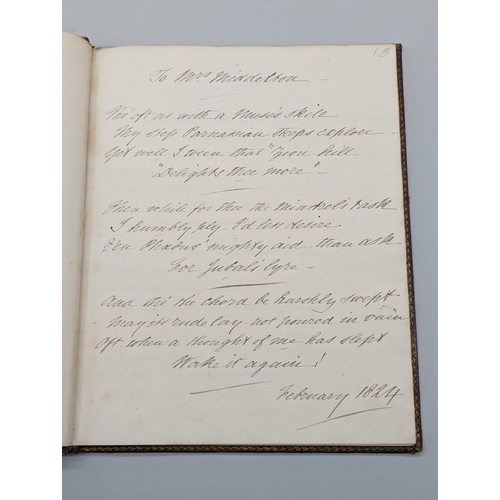 To Mrs Middelton
Tho' oft as with a Muse's skill
My steps Parnassian steeps explore
Yet well I ween that "Zion hill
"Delights thee more" -
Then while for thee the Minstrel's task
I humbly ply I'd less desire
E'en Phœbus' mighty aid - than ask
For Jubal's lyre -
And tho' the chord be harshly swept
- may its rude lay - not poured in vain
Oft when a thought of me has slept
Wake it again!
February 1824